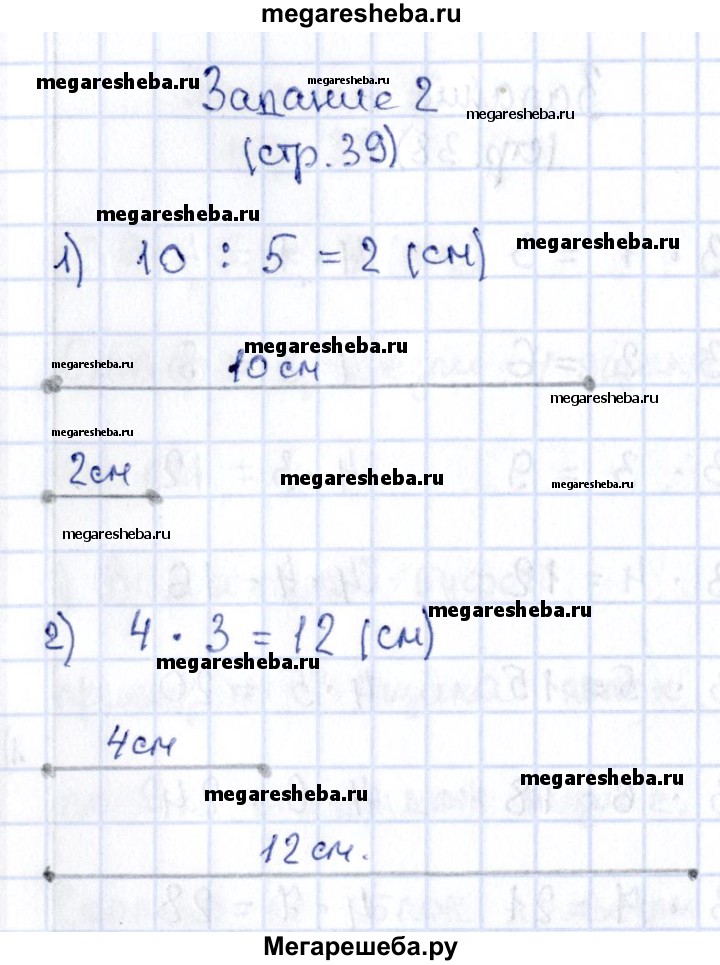 megaresheba.ru
megaresheba.ru
megaresheba.ru
Задание 2
megaresheba.ru
(стр. 39)
megaresheba.ru
megaresheba.ru
1) 10 : 5 = 2 (см)
megaresheba.ru
megaresheba.ru
10 см
megaresheba.ru
megaresheba.ru
2см
megaresheba.ru
megaresheba.ru
megaresheba.ru
megaresheba.ru
2) 4 · 3 = 12 (см)
megaresheba.ru
4см
megaresheba.ru
megaresheba.ru
12 см.
Мегарешеба.ру